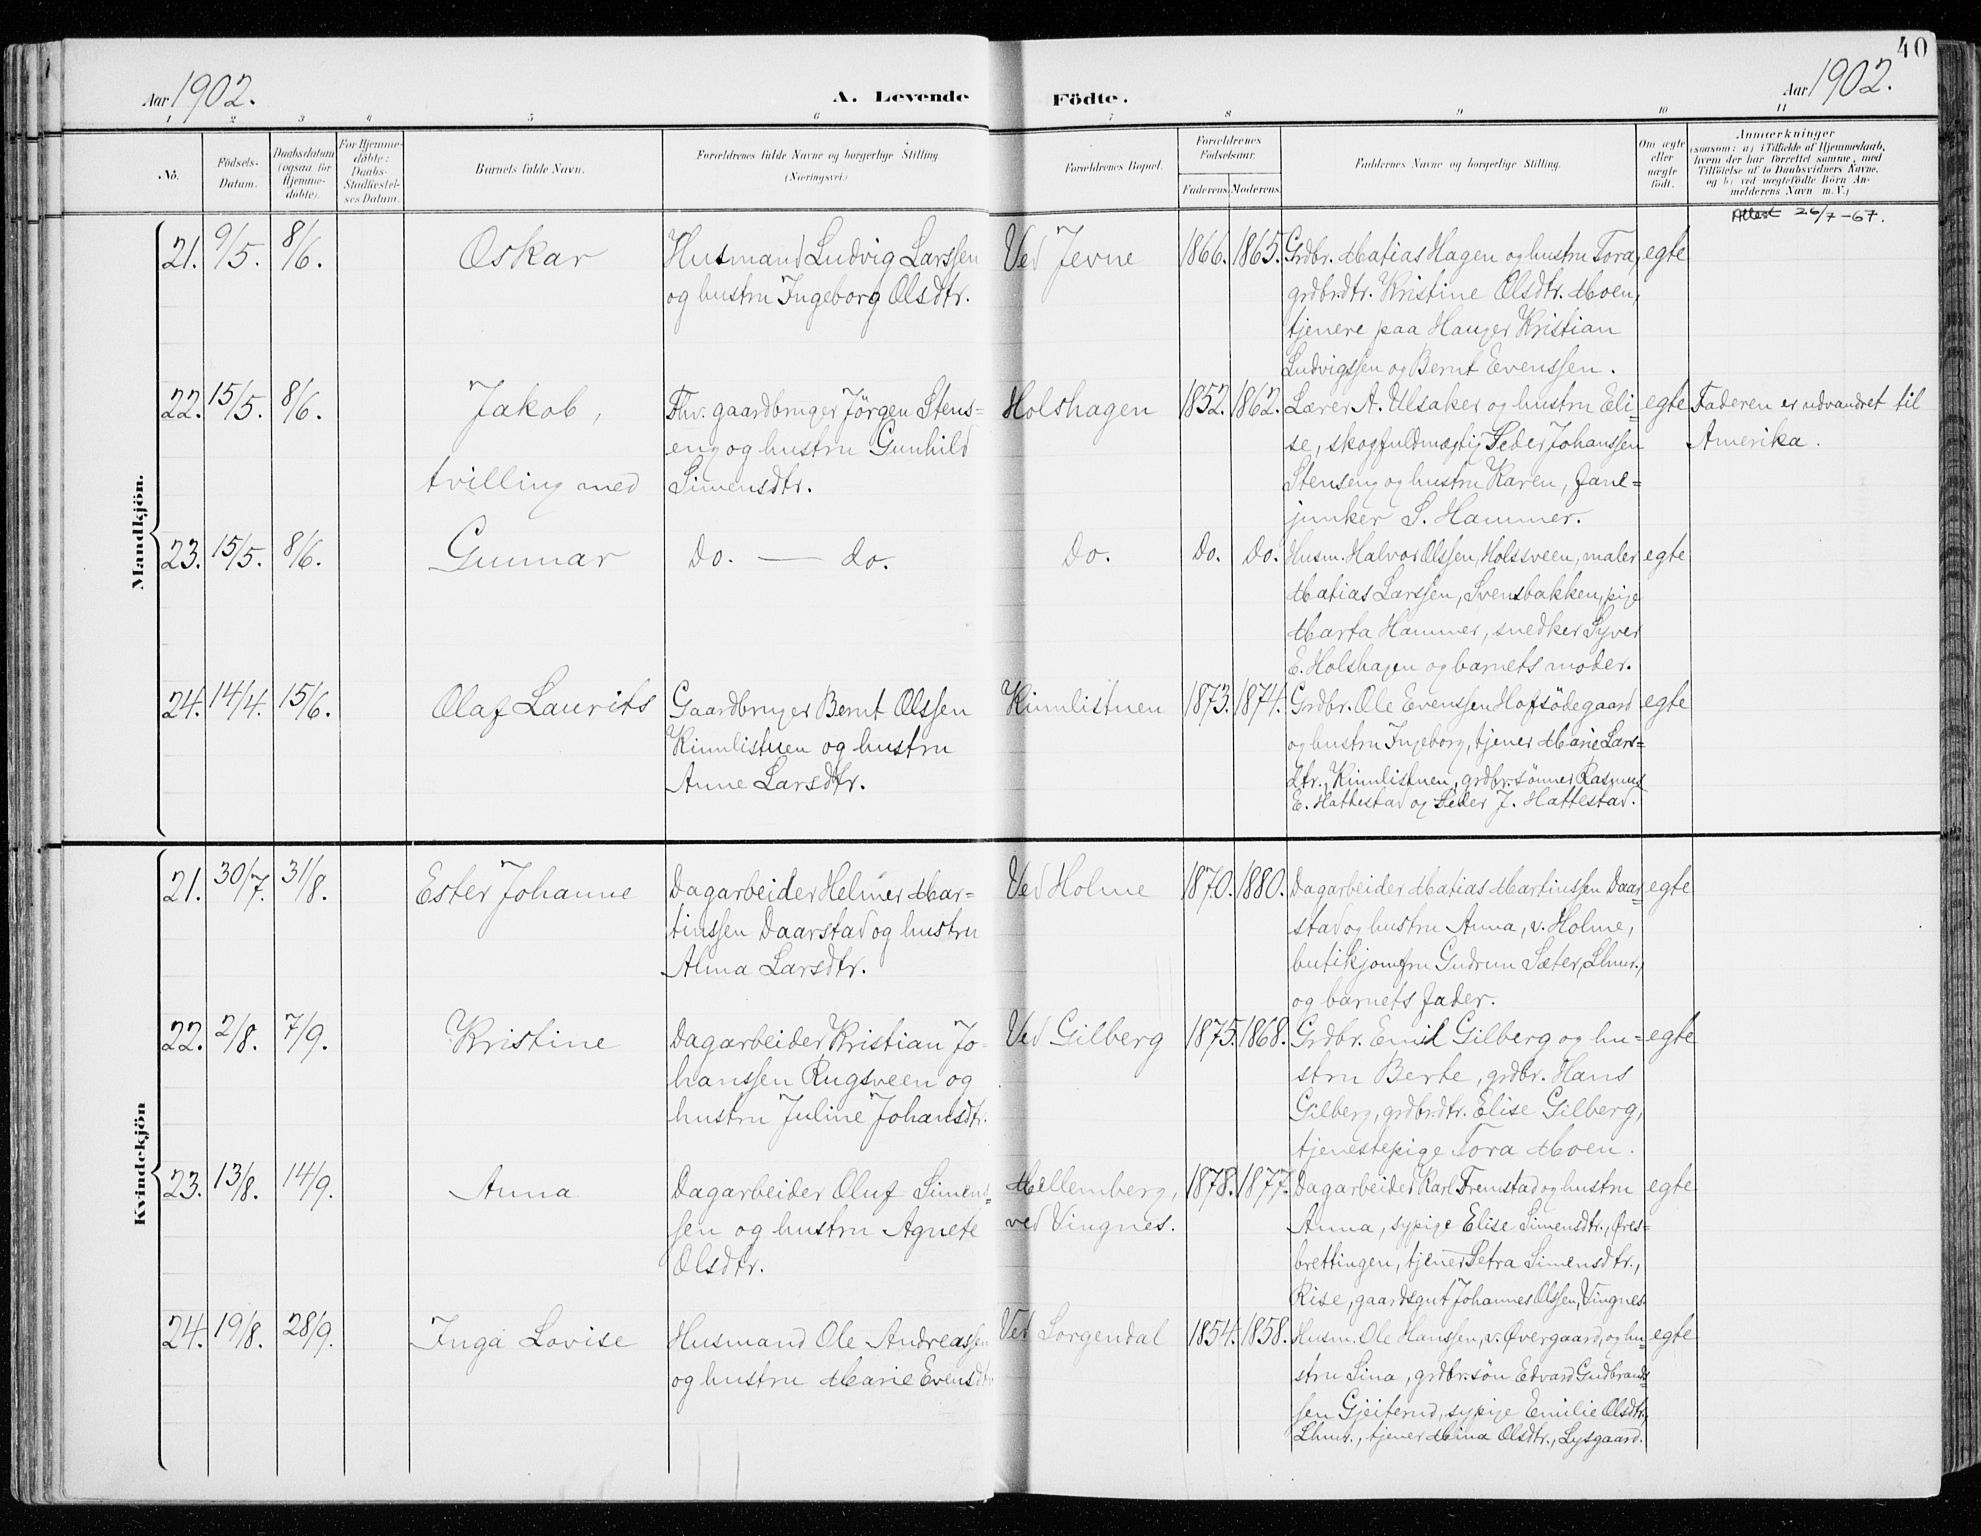 40
Aar 1902.
A. Levende Födte.
Aar 1902.
1 2 3 4 5 6 7 8 9 10 11
No.
Födsels-
Datum.
Daabsdatum
(ogsaa for
Hjemme-
döbte).
For Hjemme-
döbte:
Daabs-
Stadfæstel-
ses Datum.
Barnets fulde Navn.
Forældrenes fulde Navne og borgerlige Stilling
(Næringsvei.)
Forældrenes Bopæl.
Forældrenes
Födselsaar.
Faderens. Moderens.
Faddernes Navne og borgerlige Stilling.
Om ægte
eller
uægte
født.
Anmærkninger
(saasom: a) i Tilfælde af Hjemmedaab,
hvem der har forrettet samme, med
Tilföielse af to Daabsvidners Navne,
og b) ved uægtefödte Börn An-
melderens Navn m. V.)
Mandkjön.
Attest 26/7-67.
21. 9/5. 8/6. Oskar
Husmand Ludvig Larssen
og hustru Ingeborg Olsdtr.
Ved Jevne 1866. 1865.
Grdbr. Matias Hagen og hustru Tora, egte
grdbr.dtr. Kristine Olsdtr. Moen,
tjenere paa Hauger Kristian
Ludvigssen og Bernt Evenssen.
22. 15/5. 8/6. Jakob,
tvilling med
Fhv. gaardbruger Jörgen Stens=
eng og hustru Gunhild
Simensdtr.
Holshagen 1852. 1862.
Lærer A. Ulsaker og hustru Eli= egte
se, skogfuldmægtig Peder Johanssen
Stenseng og hustru Karen, fane=
junker S. Hammer.
Faderen er udvandret til
Amerika.
23. 15/5. 8/6. Gunnar
Do. — do.
Do. Do. Do.
Husm. Halvor Olssen, Holssveen, maler egte
Matias Larssen, Svensbakken, pige
Marta Hammer, snedker Syver
E. Holshagen og barnets moder.
24. 14/4. 15/6. Olaf Laurits
Gaardbruger Bernt Olssen
Kinnlistuen og hustru
Anne Larsdtr.
Kinnlistuen 1873. 1874.
Grdbr. Ole Evenssen Hofsödegaard egte
og hustru Ingeborg, tjener Marie Lars=
dtr., Kinnlistuen, grdbr.sönner Rasmus
E. Hattestad og Peder J. Hattestad.
Kvindekjön
21. 30/7. 31/8. Ester Johanne
Dagarbeider Helmer Mar=
tinssen Daarstad og hustru
Alma Larsdtr.
Ved Holme 1870. 1880.
Dagarbeider Matias Martinssen Daar= egte
stad og hustru Anna, v. Holme,
butikjomfru Gudrun Sæter, Lhmr.,
og barnets fader.
22. 2/8. 7/9. Kristine
Dagarbeider Kristian Jo=
hanssen Rugsveen og
hustru Juline Johansdtr.
Ved Gilberg 1875. 1868.
Grdbr. Emil Gilberg og hu= egte
stru Berte, grdbr. Hans
Gilberg, grdbr.dtr. Elise Gilberg,
tjenestepige Tora Moen.
23. 13/8. 14/9. Anna
Dagarbeider Oluf Simens=
sen og hustru Agnete
Olsdtr.
Mellemberg,
ved Vingnes.
1878. 1877.
Dagarbeider Karl Fremstad og hustru egte
Anna, sypige Elise Simensdtr., Öres=
brettingen, tjener Petra Simensdtr.,
Rise, gaardsgut Johannes Olssen, Vingnes.
24. 19/8. 28/9. Inga Lovise
Husmand Ole Andreassen
og hustru Marie Evensdtr
Ved Sorgendal 1854. 1858.
Husm. Ole Hanssen, v. Övergaard, og hu= egte
stru Sina, grdbr.sön Edvard Gudbrands=
sen Gjeiterud, sypige Emilie Olsdtr.,
Lhmr., tjener Mina Olsdtr., Lysgaard.